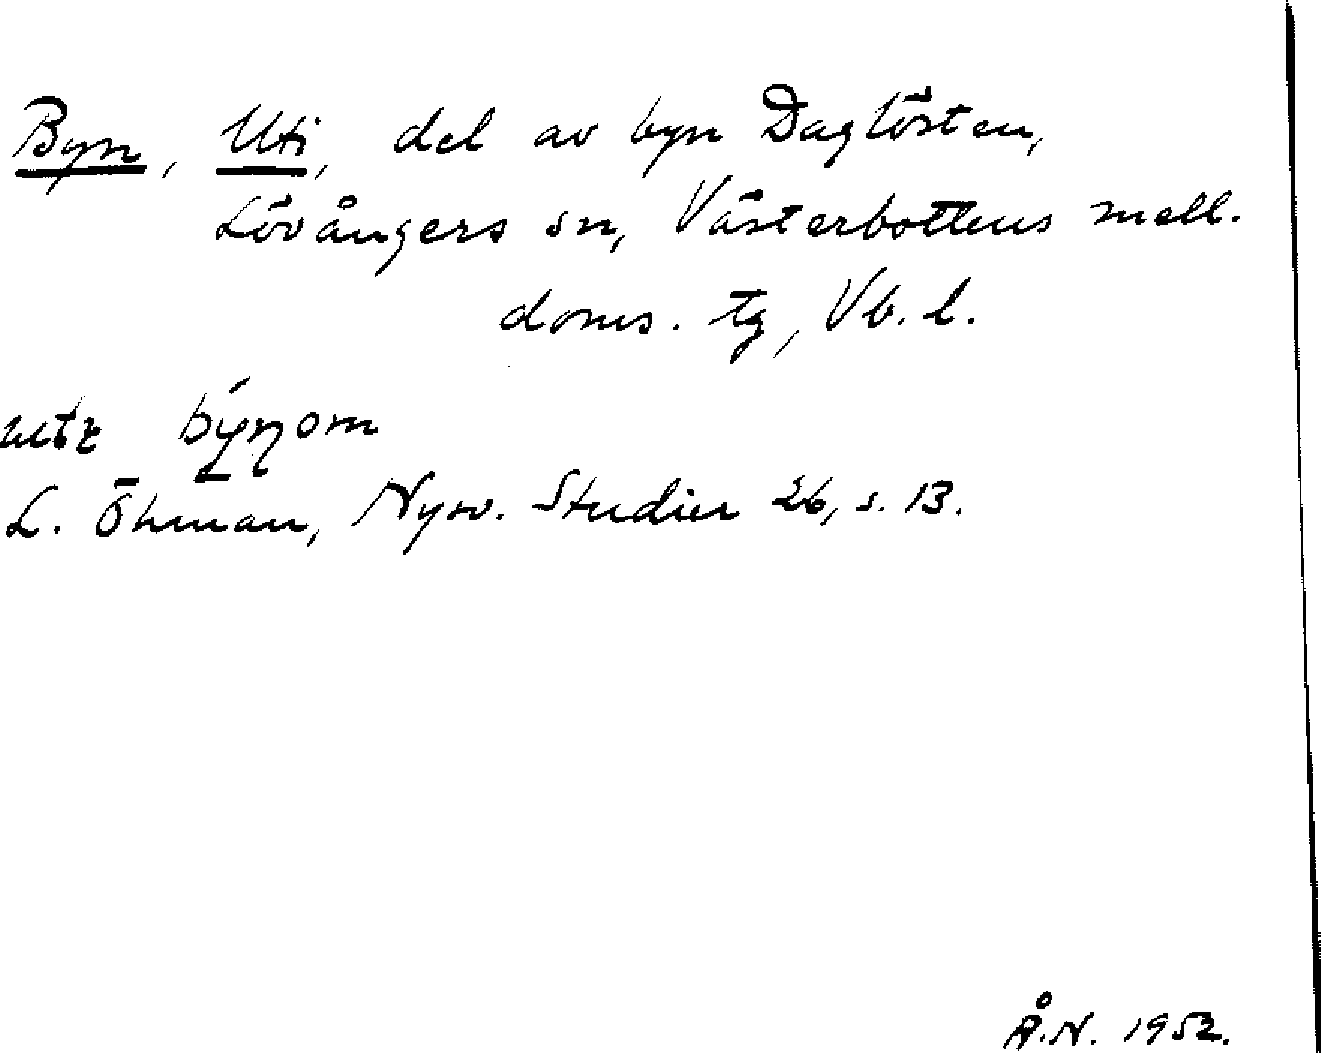 Byn, Uti, del av byn Daglösten,
Lövångers sn, Västerbottens mell.
doms. tg, Vb. l.
býŋom
L. Öhman, Nysv. Studier 26, s. 13.
Å.N. 1952.